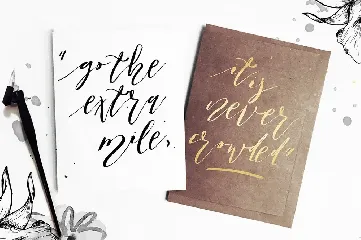 "go the
extra
mile,
it's
never
crowded"